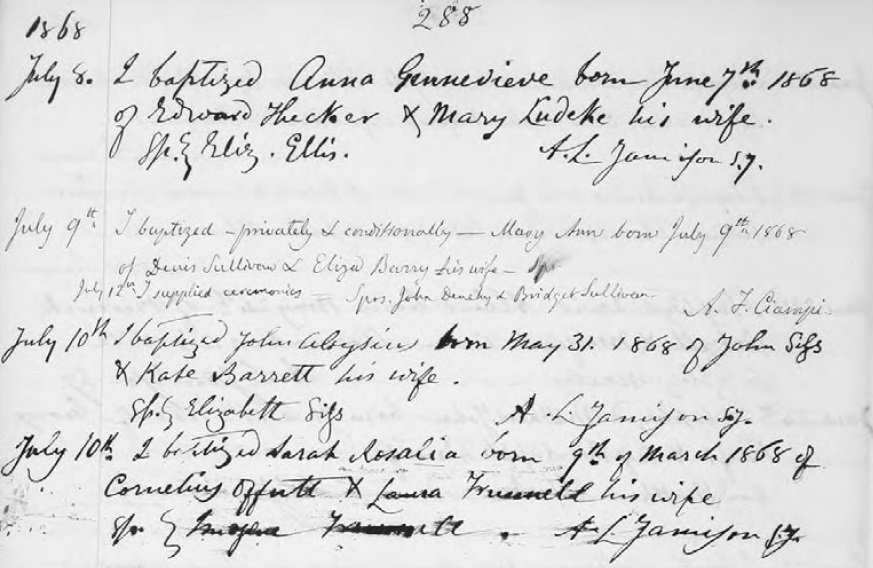 288
1868
July 8. I baptized Anna Gennevieve born June 7th 1868
of Edward Hecker & Mary Ludeke his wife.
Sp. Eliz. Ellis. A. L. Jamison S.J.
July 9th I baptized - privately & conditionally - Mary Ann born July 9th 1868
of Denis Sullivan & Eliza Barry his wife - Spr
July 12th I supplied ceremonies - Spos. John & Bridget Sullivan
A. F. Ciampi
July 10th I baptized John Aloysius born May 31. 1868 of John
& Kate Barrett his wife.
Sp. Elizabeth A. L. Jamison S.J.
July 10th I baptized Sarah Rosalia born 9th of March 1868 of
Cornelius Offutt & Laura his wife
Sp. A. L. Jamison S.J.